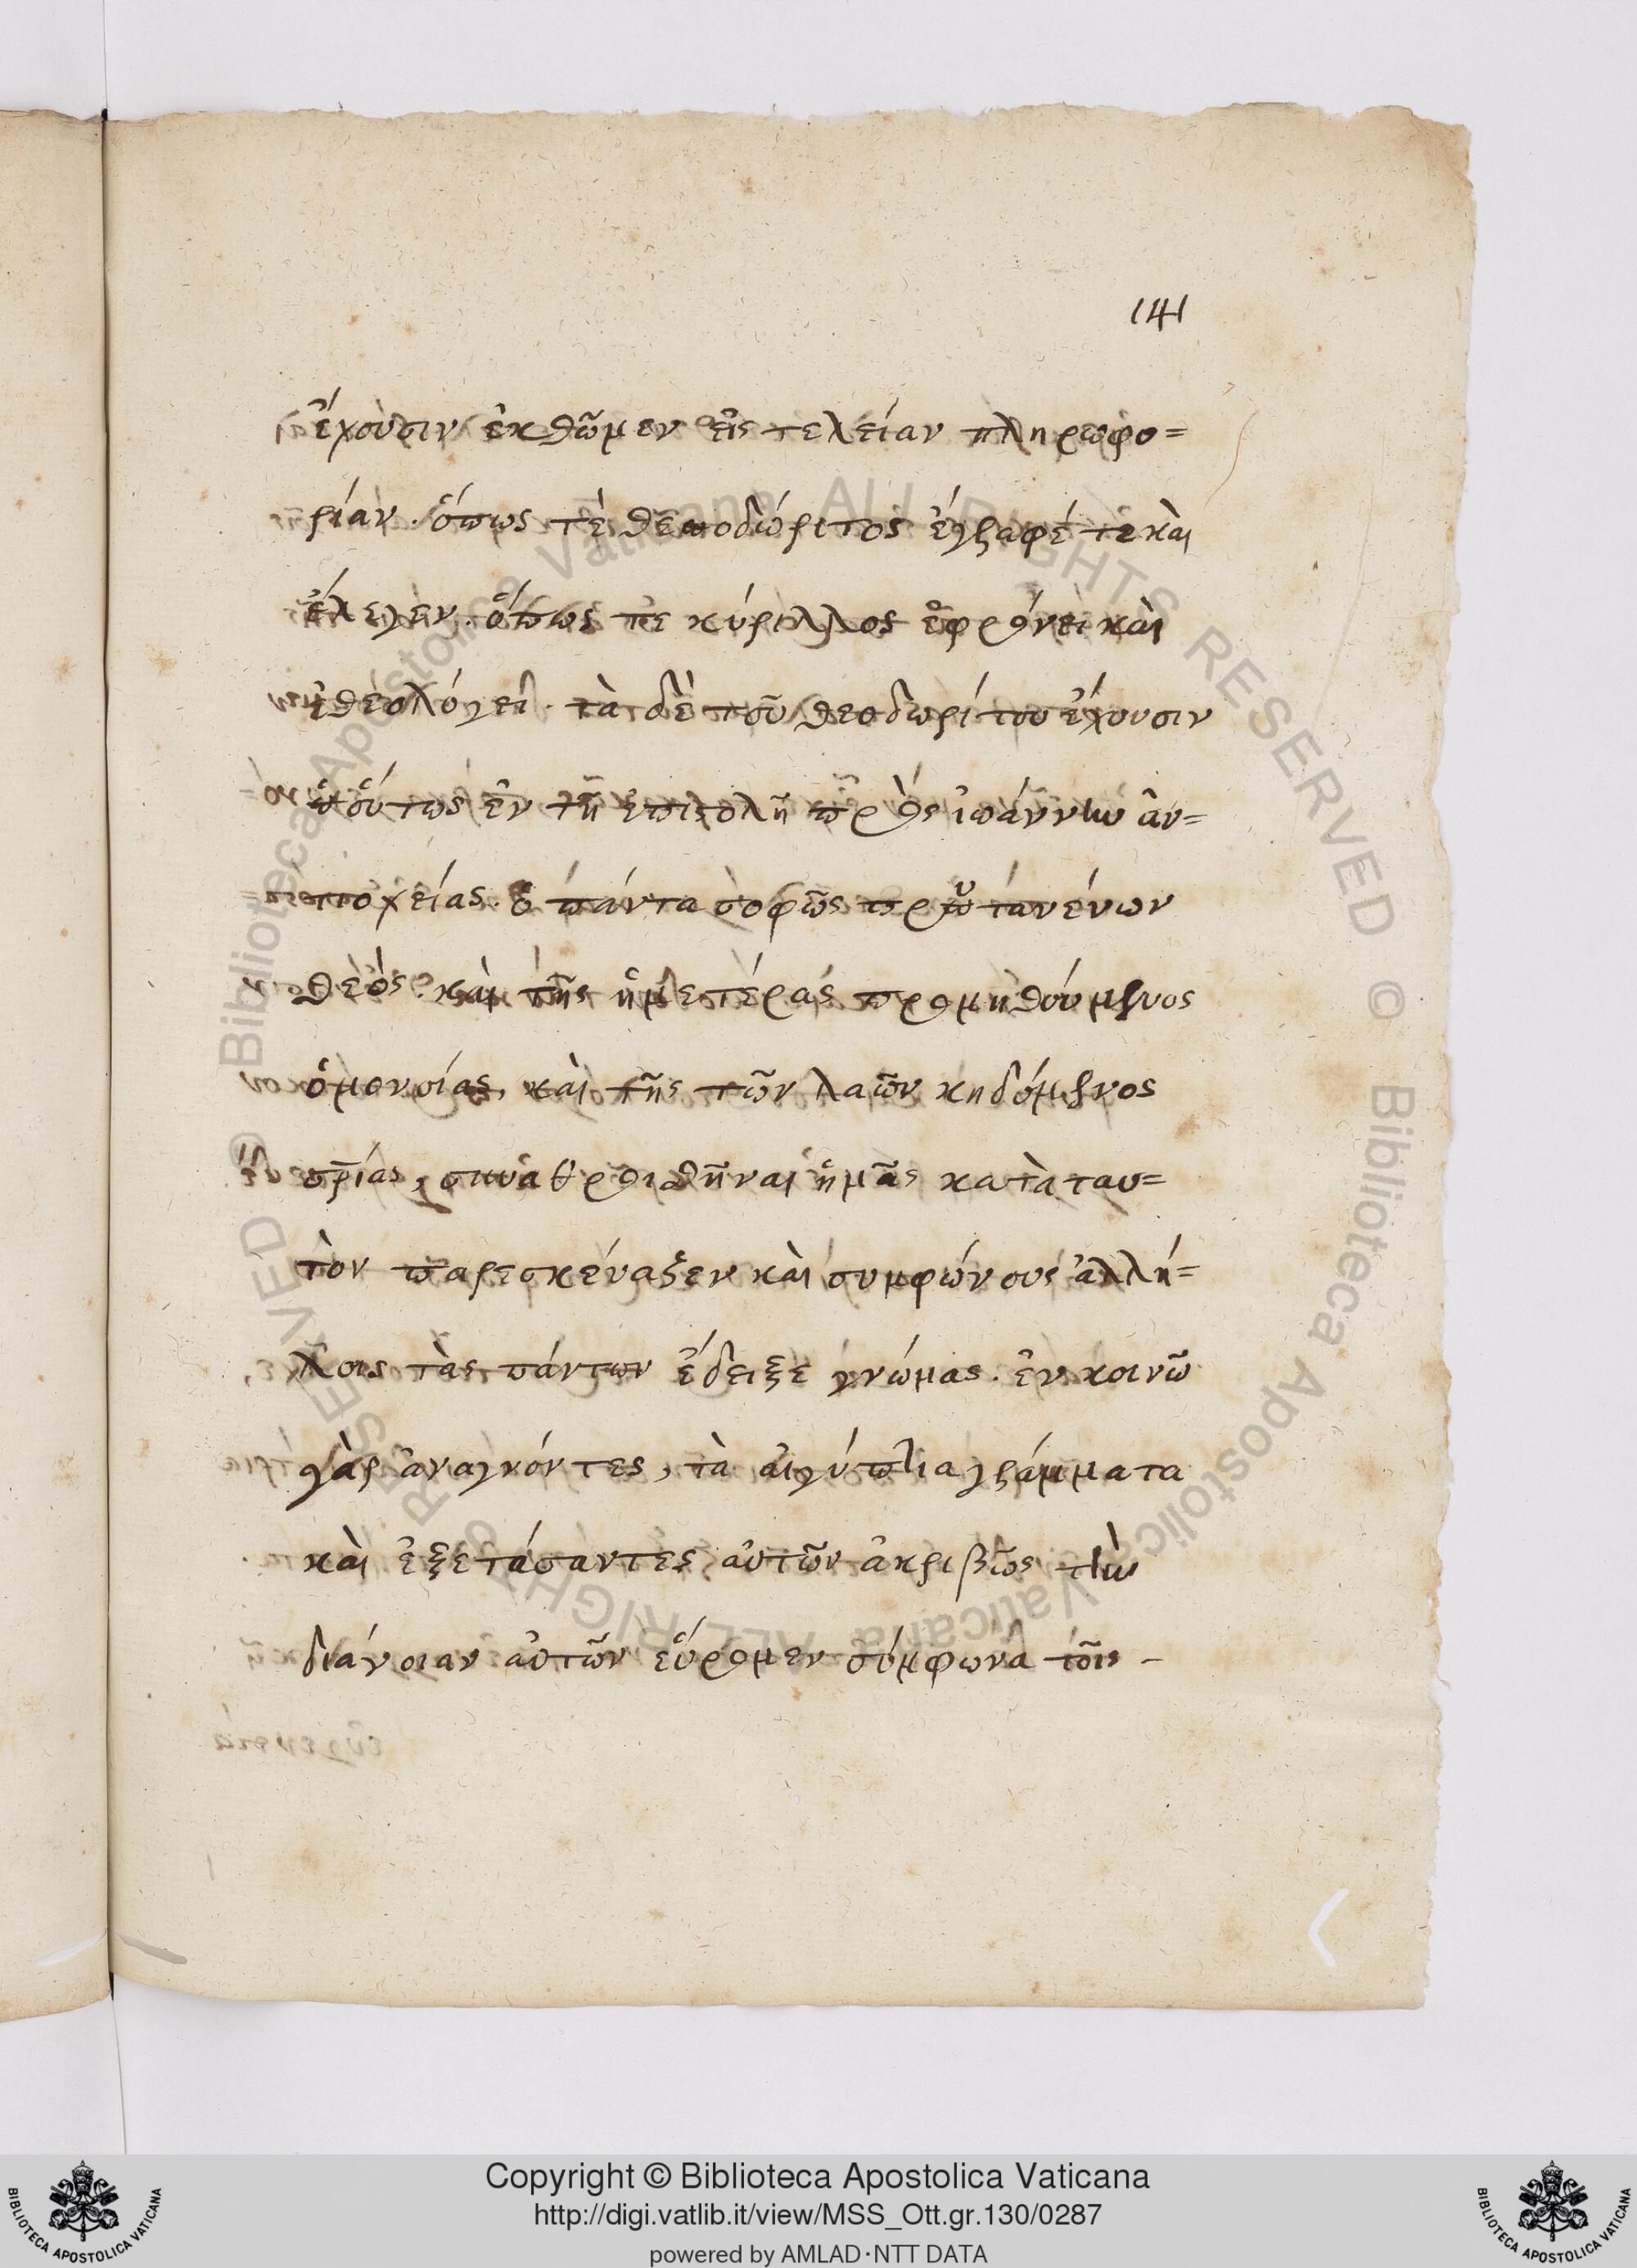 141
ἔχουσιν ἐκθῶμεν εἰς τελείαν πληροφο=
ρίαν. ὅπως τὲ θεοδώριτος ἔγραφέ τε καὶ
ἔλεγεν. ὅπως τε κύριλλος ἐφρόνει καὶ
ἐθεολόγει. τὰ δὲ τοῦ θεοδωρίτου ἔχουσιν
οὕτως ἐν τῆ ἐπιστολῆ πρὸς ἰωάννην ἀν=
τιοχείας. ὁ πάντα σοφῶς πρυτανεύων
θεὸς καὶ τῆς ἡμετέρας προμηθούμενος
ὁμονοίας, καὶ τῆς τῶν λαῶν κηδόμενος
σρίας, συναθροισθῆναι ἡμᾶς κατὰ ταυ=
τὸν παρεσκεύαξεν καὶ συμφώνους ἀλλή=
λοις τὰς πάντων ἔδειξε γνώμας. ἐν κοινῶ
γὰρ ἀναγνόντες, τὰ αἰγύπτια γράμματα
καὶ ἐξετάσαντες αὐτῶν ἀκριβῶς τὴν
διάνοιαν αὐτῶν εὕρομεν σύμφωνα τοῖς -
© Biblioteca Apostolica Vaticana ALL RIGHTS RESERVED © Biblioteca Apostolica Vaticana ALL RIGHTS RESERVED
Copyright © Biblioteca Apostolica Vaticana
http://digi.vatlib.it/view/MSS_Ott.gr.130/0287
powered by AMLAD·NTT DATA
BIBLIOTECA APOSTOLICA VATICANA
BIBLIOTECA APOSTOLICA VATICANA